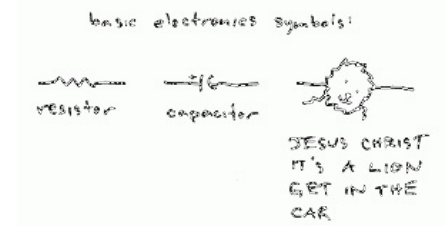 basic electronics symbols:
resistor
capacitor
JESUS CHRIST
IT'S A LION
GET IN THE
CAR